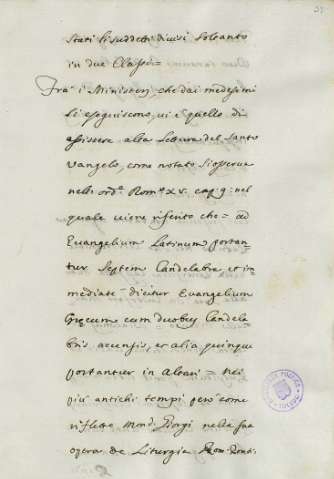 stati li suddetti divisi soltanto
in due Classi=
Frà i Ministerj, che dai medesimi
si eseguiscono, vi è quello di
assistere alla Lettura del Santo
Vangelo, come notato si osserva
nell' ord.e Rom.o xv. cap. 9: nel
quale viene riferito che = ad
Evangelium Latinum portan
tur Septem Candelabra et im
mediate dicitur Evangelium
Gręcum cum duobus Candela
bris accensis, et alia quinque
portantur in
più antichi tempi però come
riflette Mons. Giorgi nella sua
opera de Liturgia Rom: Ponti: